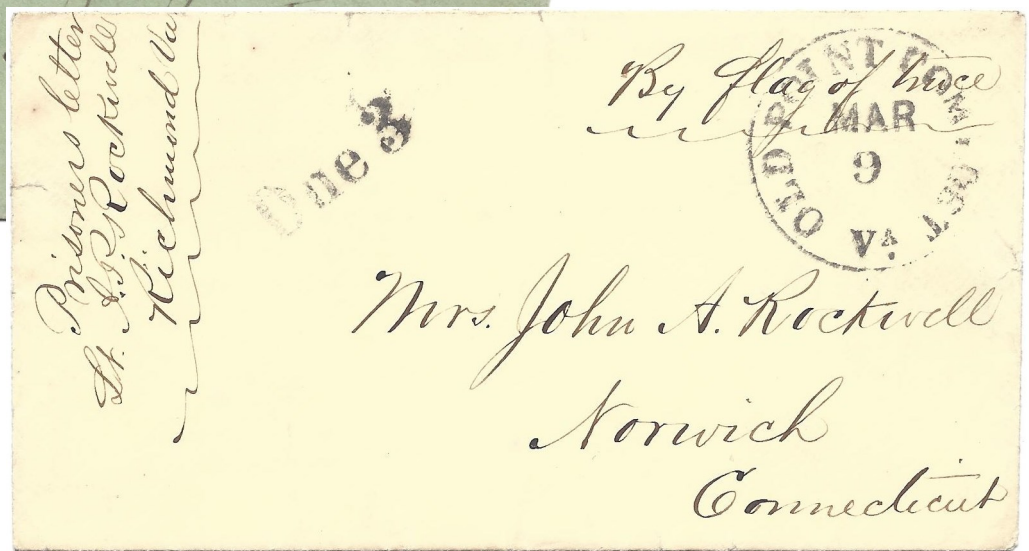 Prisoners letter
Lt. A.P. Rockwell
Richmond Va
Due 3
By flag of truce
OLD POINT COMFORT
MAR
9
Va.
Mrs. John A. Rockwell
Norwich
Connecticut